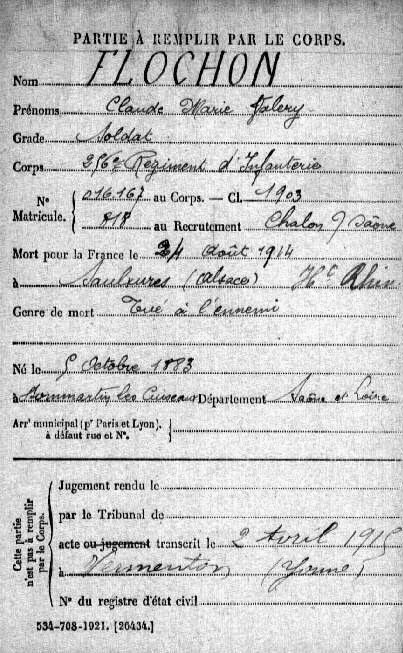 PARTIE À REMPLIR PAR LE CORPS.
Nom FLOCHON
Prénoms Claude Marie Valery
Grade Soldat
Corps 256e Régiment d'Infanterie
N° Matricule. { 016167 au Corps. — Cl. 1903
818 au Recrutement Chalon s/ Saône
Mort pour la France le 24 Août 1914
à Saulxures (Alsace) Ht Rhin
Genre de mort Tué à l'ennemi
Né le 5 Octobre 1883
à Dommartin les Cuiseaux Département Saône et Loire
Arr' municipal (p' Paris et Lyon), à défaut rue et N°. }
Cette partie n'est pas à remplir par le Corps.
Jugement rendu le
par le Tribunal de
acte ou jugement transcrit le 2 Avril 1915
à Vermenton (Yonne)
N° du registre d'état civil
534-708-1921. [26434.]